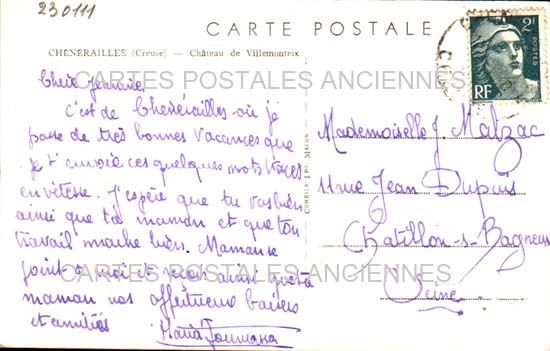 230111
CARTE POSTALE
CHÉNÉRAILLES (Creuse) — Château de Villemonteix
2F
POSTES
RF
CARTES POSTALES ANCIENNES
Chère Jeannine,
C'est de Chénérailles où je
passe de très bonnes vacances que
je t'envoie ces quelques mots tracés
en vitesse. J'espère que tu vas bien
ainsi que ta maman et que ton
travail marche bien. Maman se
joint à moi et ainsi qu'à ta
maman nos affectueux baisers
et amitiés
Maria
Mademoiselle J. Malzac
11 rue Jean Dupuis
Chatillon-s-Bagneux
Seine
CARTES POSTALES ANCIENNES